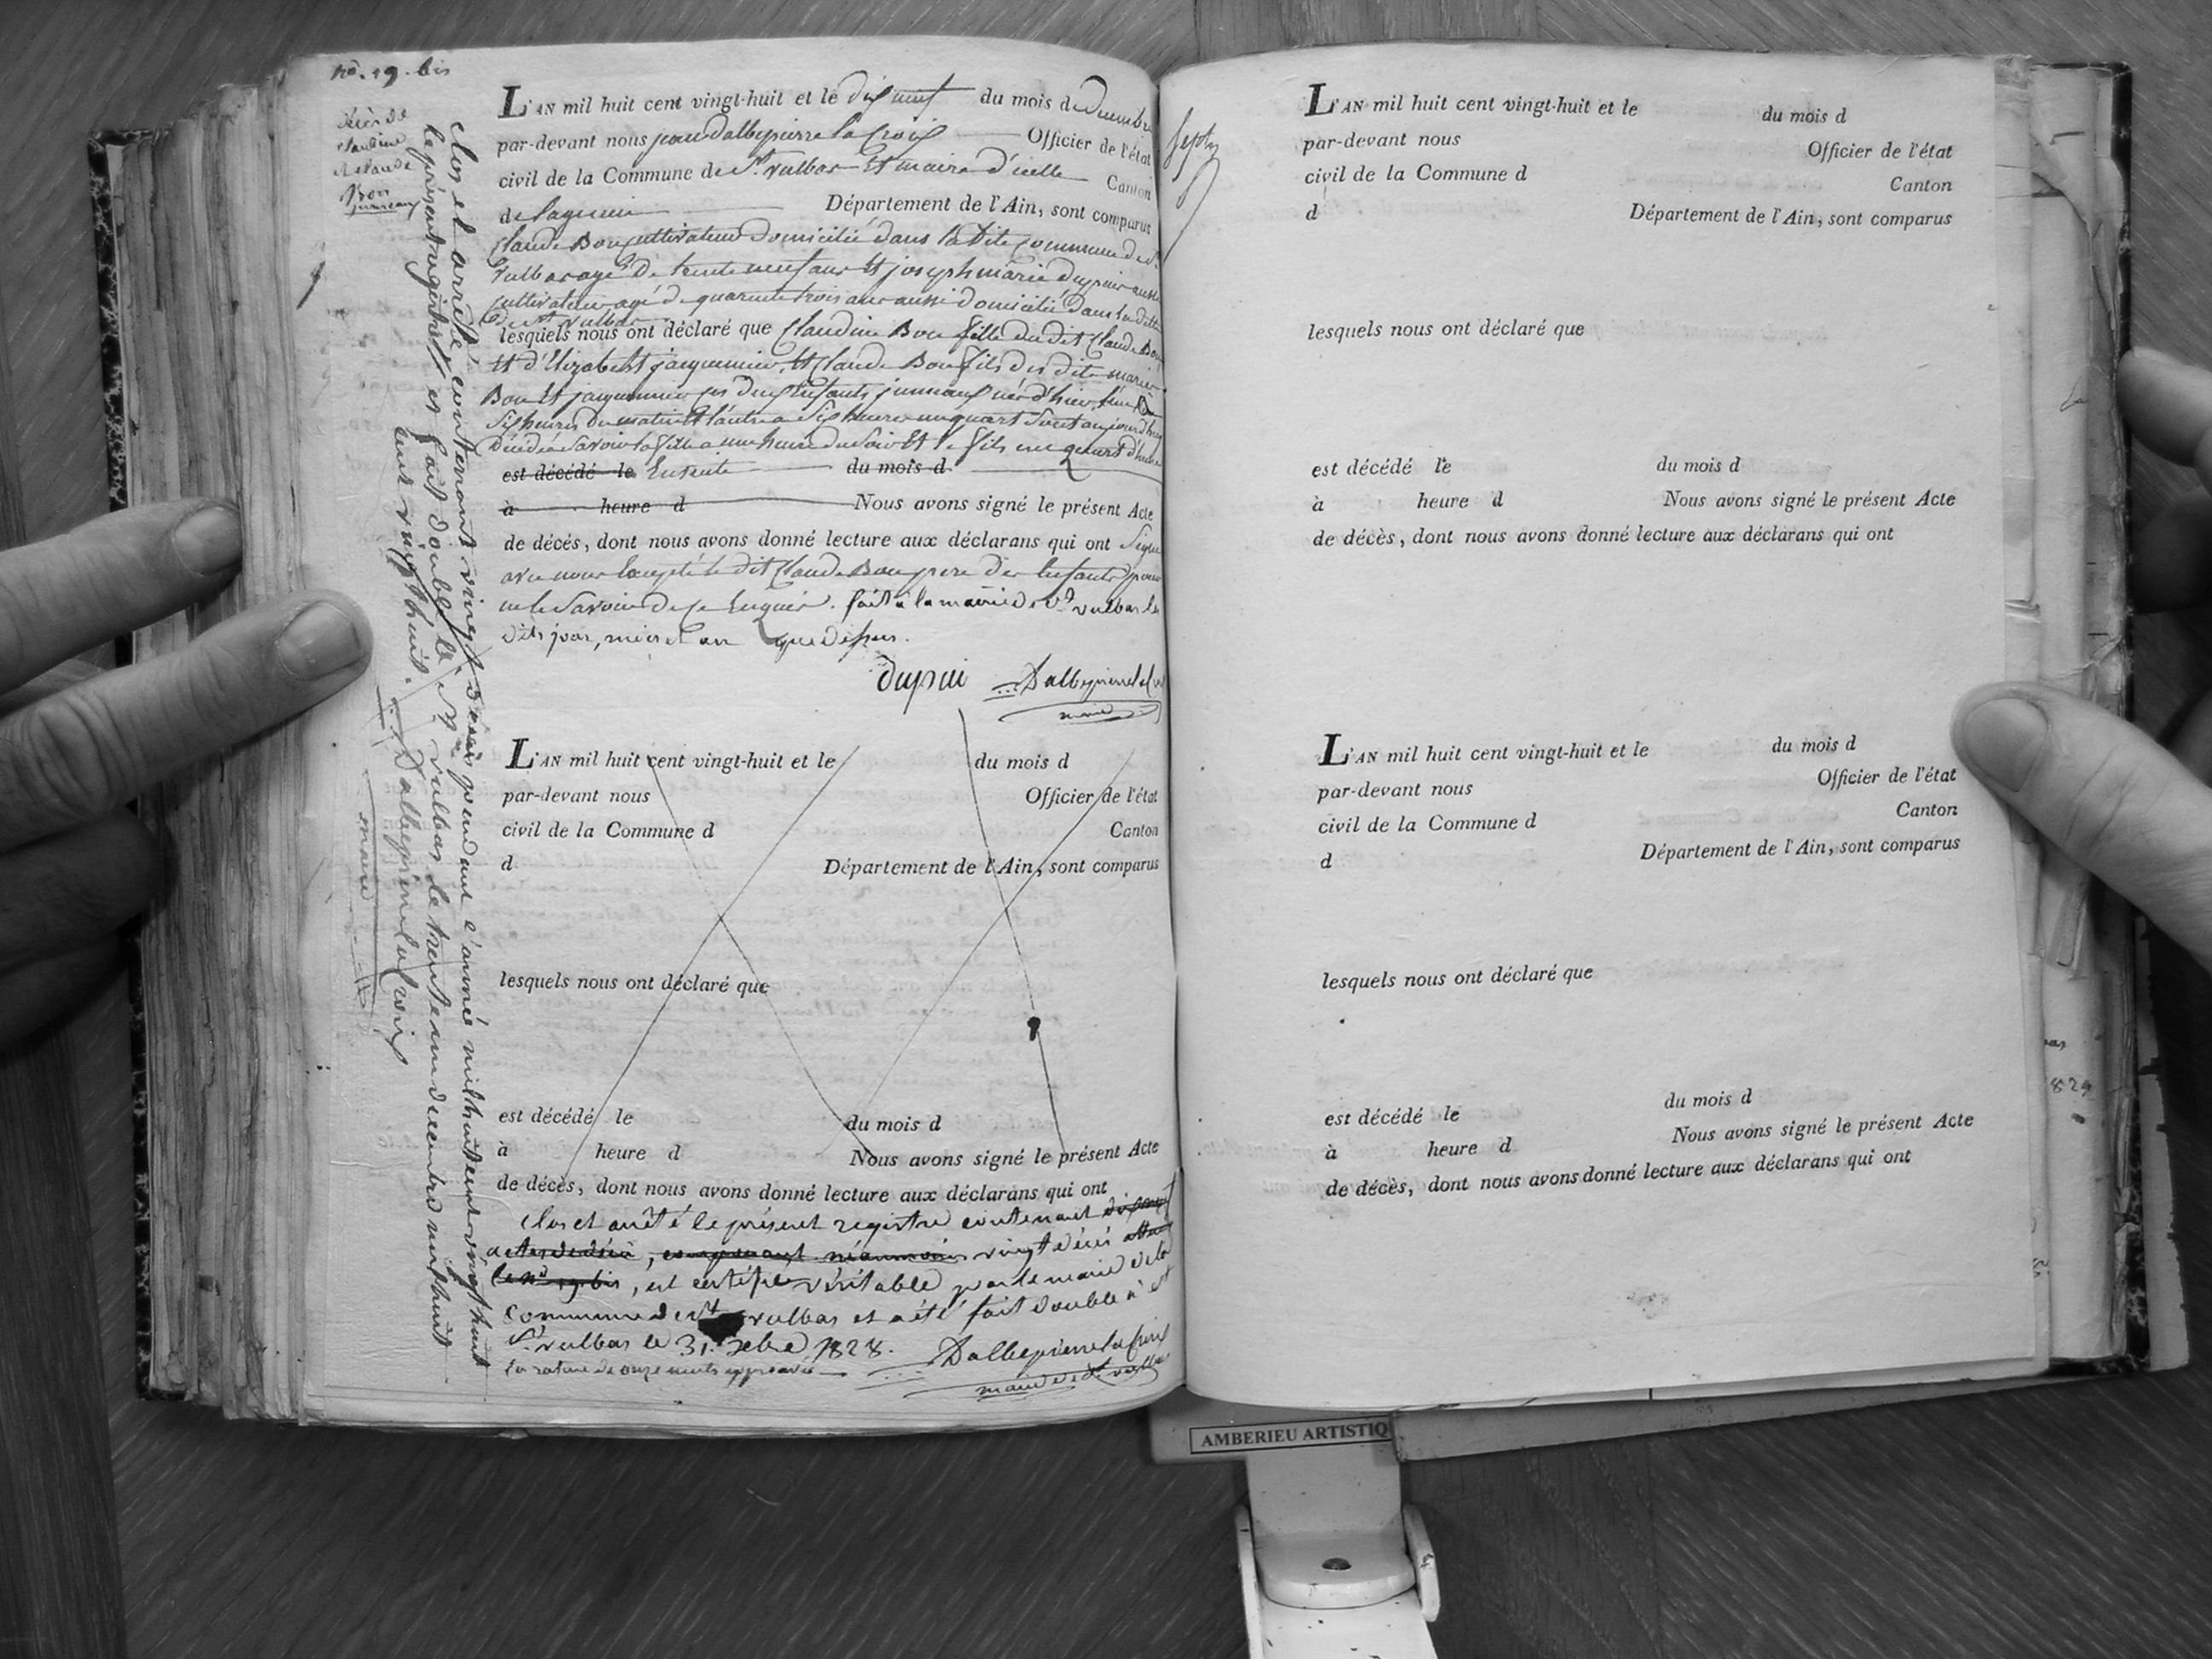 no. 19. bis
décès de
claudine
et claude
Bon
jumeaux
L'AN mil huit cent vingt-huit et le dix neuf du mois de Decembre
par-devant nous jean dalbepierre la Croix Officier de l'état
civil de la Commune de St. vulbas Et maire d'icelle Canton
de lagnieu Département de l'Ain, sont comparus
Claude Bon cultivateur domicilié dans la dite Commune de St.
Vulbas agé de trente neuf ans Et joseph marie dupuis aussi
Cultivateur agé de quarante trois ans aussi domicilié dans la dite
de St vulbas
lesquels nous ont déclaré que Claudine Bon fille du dit Claude Bon
Et d'Elizabeht jacquemier, Et Claude Bon fils des dits mariés
Bon Et jacquemier ses deux Enfants jumeaux nés d'hier, l'une à
Six heures du matin Et l'autre a Six heures un quart Sont aujourd'huy
Décédés Savoir la fille a une heure du Soir Et le fils un quart d'heure
est décédé le Ensuite du mois d
à heure d Nous avons signé le présent Acte
de décés, dont nous avons donné lecture aux déclarans qui ont Signé
avec nous Excepté le dit Claude Bon pere des Enfants pour
ne le Savoir de ce Enquis. fait à la mairie de St. vulbas les
dits jour, mois et an que dessus.
dupui Dalbepierre la Croix
maire
L'AN mil huit cent vingt-huit et le du mois d
par-devant nous Officier de l'état
civil de la Commune d Canton
d Département de l'Ain, sont comparus
lesquels nous ont déclaré que
est décédé le du mois d
à heure d Nous avons signé le présent Acte
de décès, dont nous avons donné lecture aux déclarans qui ont
Clos et arrêté le présent registre contenant dix neuf
actes de décès, comprenant néanmoins vingt décés attendu
le no 19 bis, est certifié véritable par le maire de la
Commune de St vulbas et a été fait double à
St. vulbas le 31. Xbre 1828. Dalbepierre la Croix
La rature de onze mots approuvée maire de St. vulbas
clos et arrêté, contenant vingt décès pendant l'année mil huit cent vingt huit
le présent registre et fait double à St. vulbas le trente un decembre mil huit
cent vingt huit. Dalbepierre la Croix
maire
L'AN mil huit cent vingt-huit et le du mois d
par-devant nous Officier de l'état
civil de la Commune d Canton
d Département de l'Ain, sont comparus
lesquels nous ont déclaré que
est décédé le du mois d
à heure d Nous avons signé le présent Acte
de décès, dont nous avons donné lecture aux déclarans qui ont
L'AN mil huit cent vingt-huit et le du mois d
par-devant nous Officier de l'état
civil de la Commune d Canton
d Département de l'Ain, sont comparus
lesquels nous ont déclaré que
est décédé le du mois d
à heure d Nous avons signé le présent Acte
de décès, dont nous avons donné lecture aux déclarans qui ont
AMBERIEU ARTISTIQ